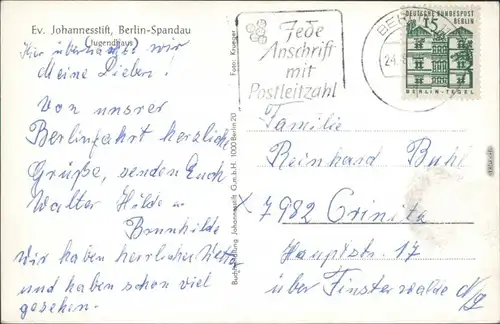 Ev. Johannesstift, Berlin-Spandau
(Jugendhaus)
Hier übernachten wir
Meine Lieben!
Von unsrer
Berlinfahrt herzliche
Grüße, senden Euch
Walter Hilde u.
Brunhilde
Wir haben herrliches Wetter
und haben schon viel
gesehen.
Buchhandlung Johannesstift G.m.b.H. 1000 Berlin 20
Foto: Krueger
Jede
Anschrift
mit
Postleitzahl
BERLIN
DEUTSCHE BUNDESPOST
BERLIN
15
BERLIN-TEGEL
Familie
Reinhard Buhl
X 7982 Crinitz
Hauptstr. 17
über Finsterwalde N/L